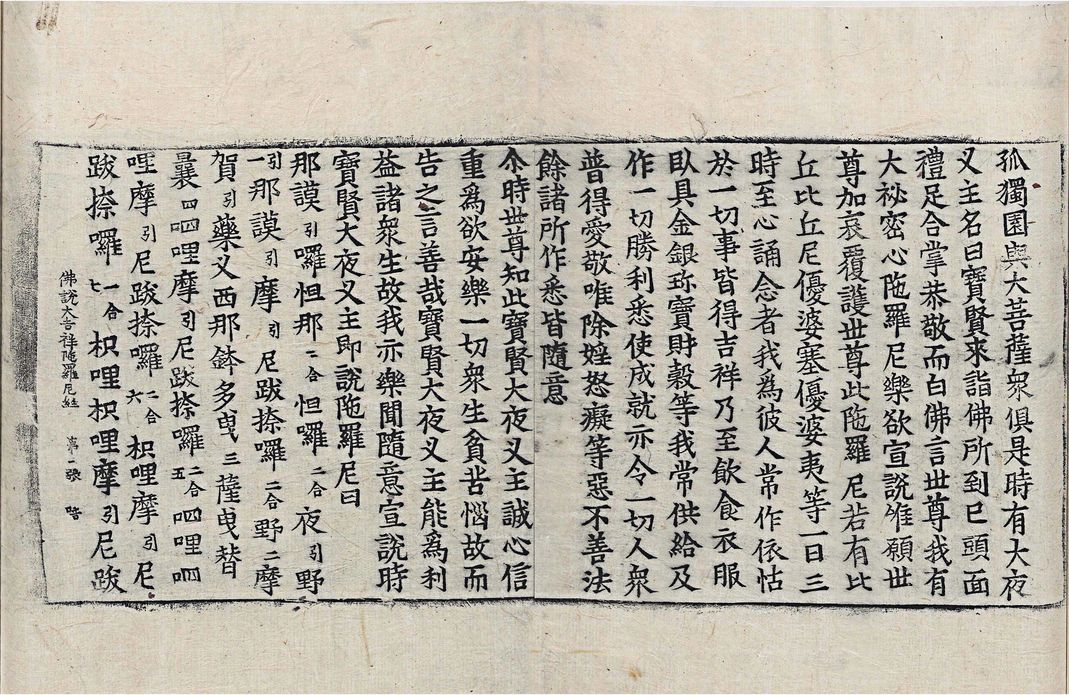 孤獨園與大菩薩衆俱是時有大夜
叉主名曰寶賢來詣佛所到已頭面
禮足合掌恭敬而白佛言世尊我有
大祕密心陁羅尼樂欲宣說唯願世
尊加哀覆護世尊此陁羅尼若有比
丘比丘尼優婆塞優婆夷等一日三
時至心誦念者我爲彼人常作依怙
於一切事皆得吉祥乃至飲食衣服
臥具金銀珎寶財穀等我常供給及
作一切勝利悉使成就亦令一切人衆
普得愛敬唯除婬怒癡等惡不善法
餘諸所作悉皆隨意
尒時世尊知此寶賢大夜叉主誠心信
重爲欲安樂一切衆生貧苦惱故而
告之言善哉寶賢大夜叉主能爲利
益諸衆生故我亦樂聞隨意宣說時
寶賢大夜叉主即說陁羅尼曰
那謨引囉怛那二合怛囉二合夜引野
引一那謨引摩引尼跋捺囉二合野二摩
賀引藥叉西那鉢多曳三薩曳替
曩四呬哩摩引尼跋捺囉二合五呬哩呬
哩摩引尼跋捺囉二合六枳哩摩引尼
跋捺囉二合七枳哩枳哩摩引尼跋
佛說大吉祥陁羅尼經 第二張